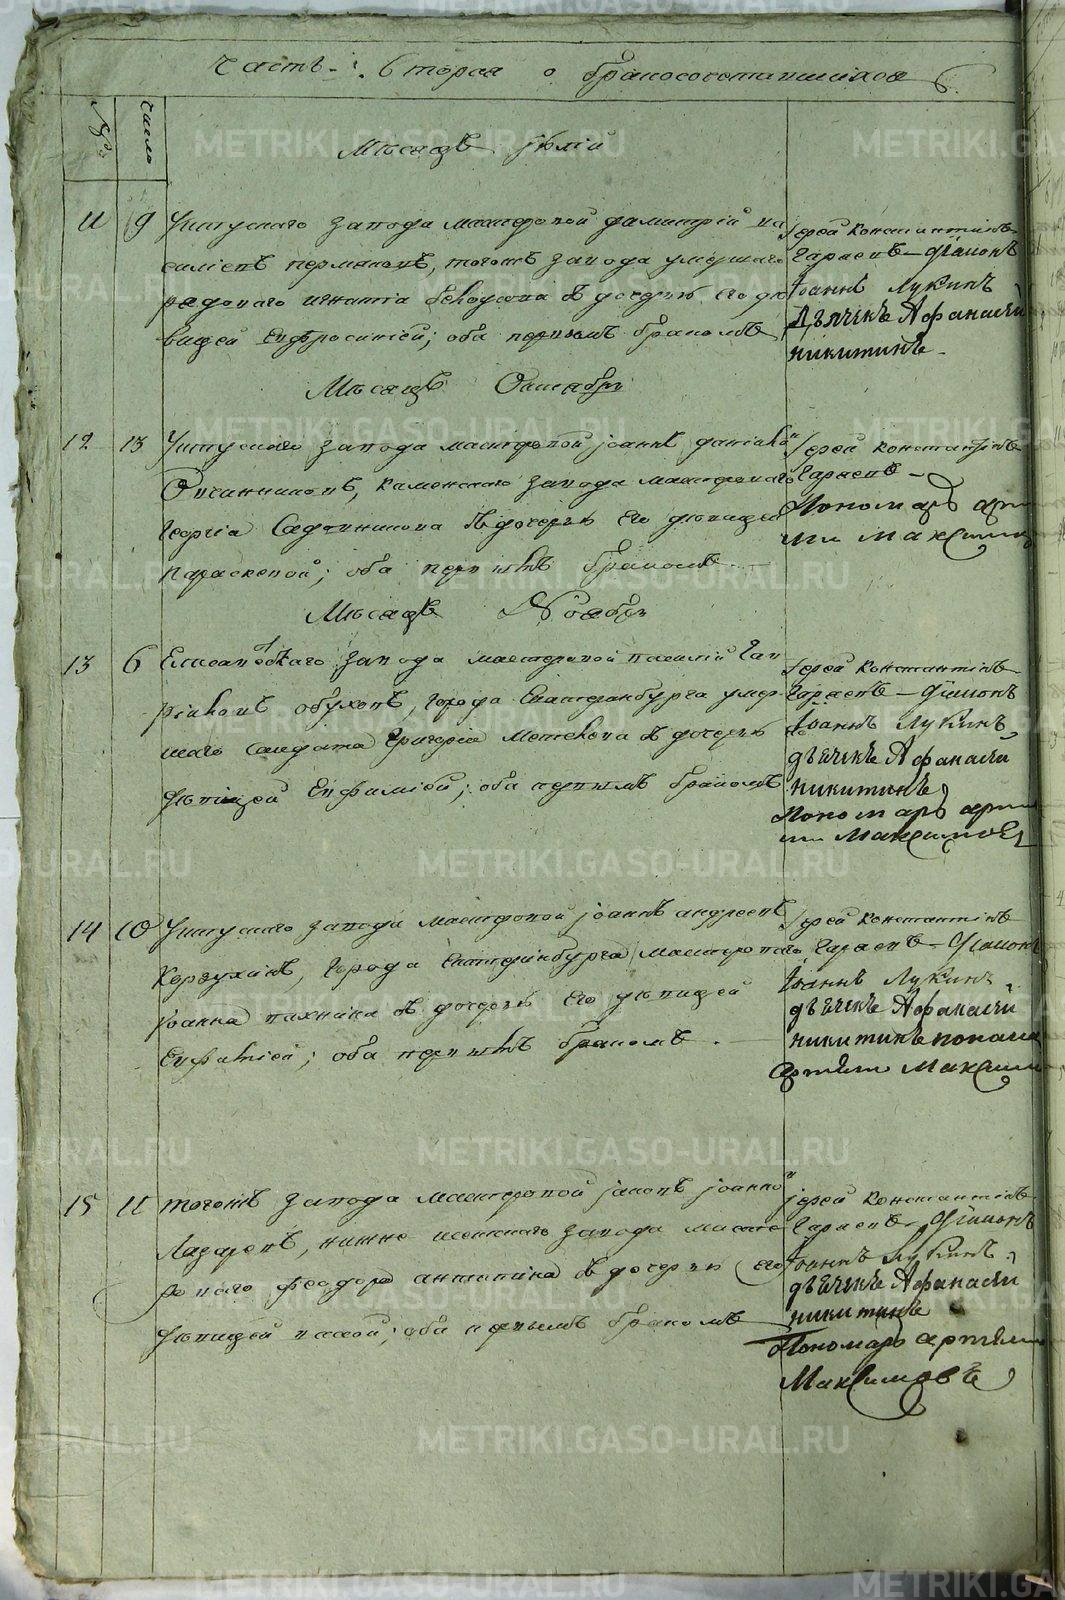 Часть вторая о бракосочетавшихся
№
число
Мѣсяцъ Іюлій
11 9 Уктускаго завода мастеровой Димитрій Ва
силіевъ Пермяковъ, тогожъ завода умершаго
рядоваго Игнатія дочерь его дѣ
вицей Евфросиніей; оба первымъ бракомъ
Іерей Константинъ
Гаряевъ - Діаконъ
Іоаннъ Лукинъ
Дьячекъ Афанасей
никитинъ
Мѣсяцъ Октябрь
12 13 Уктускаго завода мастеровой Іоаннъ
Овчинниковъ, Каменскаго завода мастероваго
Георгія Садовникова съ дочерью его дѣвицей
Параскевой; оба первымъ бракомъ.
Іерей Константинъ
Гаряевъ -
Пономарь арте
ми Максимов
Мѣсяцъ Ноябрь
13 6 завода мастеровой Василій Гав
риловъ Обуховъ, города Екатеринбурга умер
шаго солдата Григорія съ дочерью
дѣвицей Евфиміей; оба первымъ бракомъ
Іерей Константинъ
Гаряевъ - Діаконъ
Іоаннъ Лукинъ
дьячекъ Афанасей
никитинъ
Пономарь арте
ми Максимовъ
14 10 Уктускаго завода мастеровой Іоаннъ Андреевъ
города Екатеринбурга мастероваго
Іоанна съ дочерью его дѣвицей
оба первымъ бракомъ.
Іерей Константинъ
Гаряевъ - Діаконъ
Іоаннъ Лукинъ
дьячекъ Афанасей
никитинъ понома
Артеми Максим
15 11 тогожъ завода мастеровой Іаковъ Іоанно
Лазаревъ, нижне исетскаго завода масте
роваго Феодора Антипина съ дочерью его
дѣвицей оба первымъ бракомъ
Іерей Константинъ
Гаряевъ - Діаконъ
Іоаннъ Лукинъ
дьячекъ Афанасей
никитинъ
Пономарь артеми
Максимовъ
METRIKI.GASO-URAL.RU